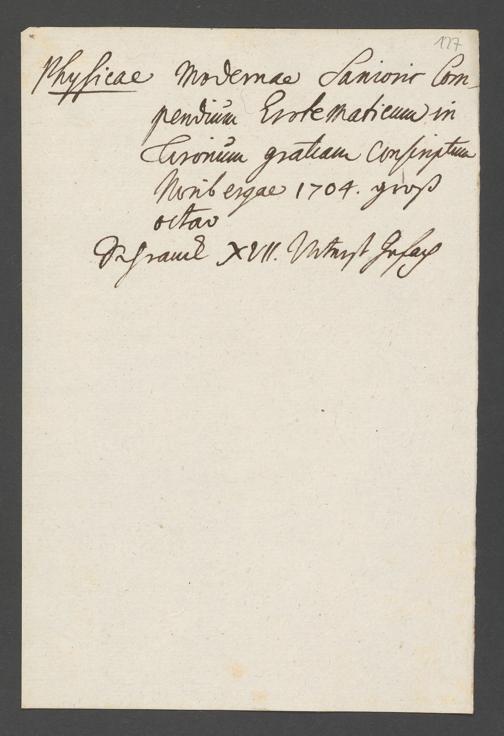 127
Physicae Modernae Sanioris Com-
pendium Erotematicum in
Tironum gratiam Conscriptum
Noribergae 1704. groß
octav
Schranck XVII. Unterst Gefach